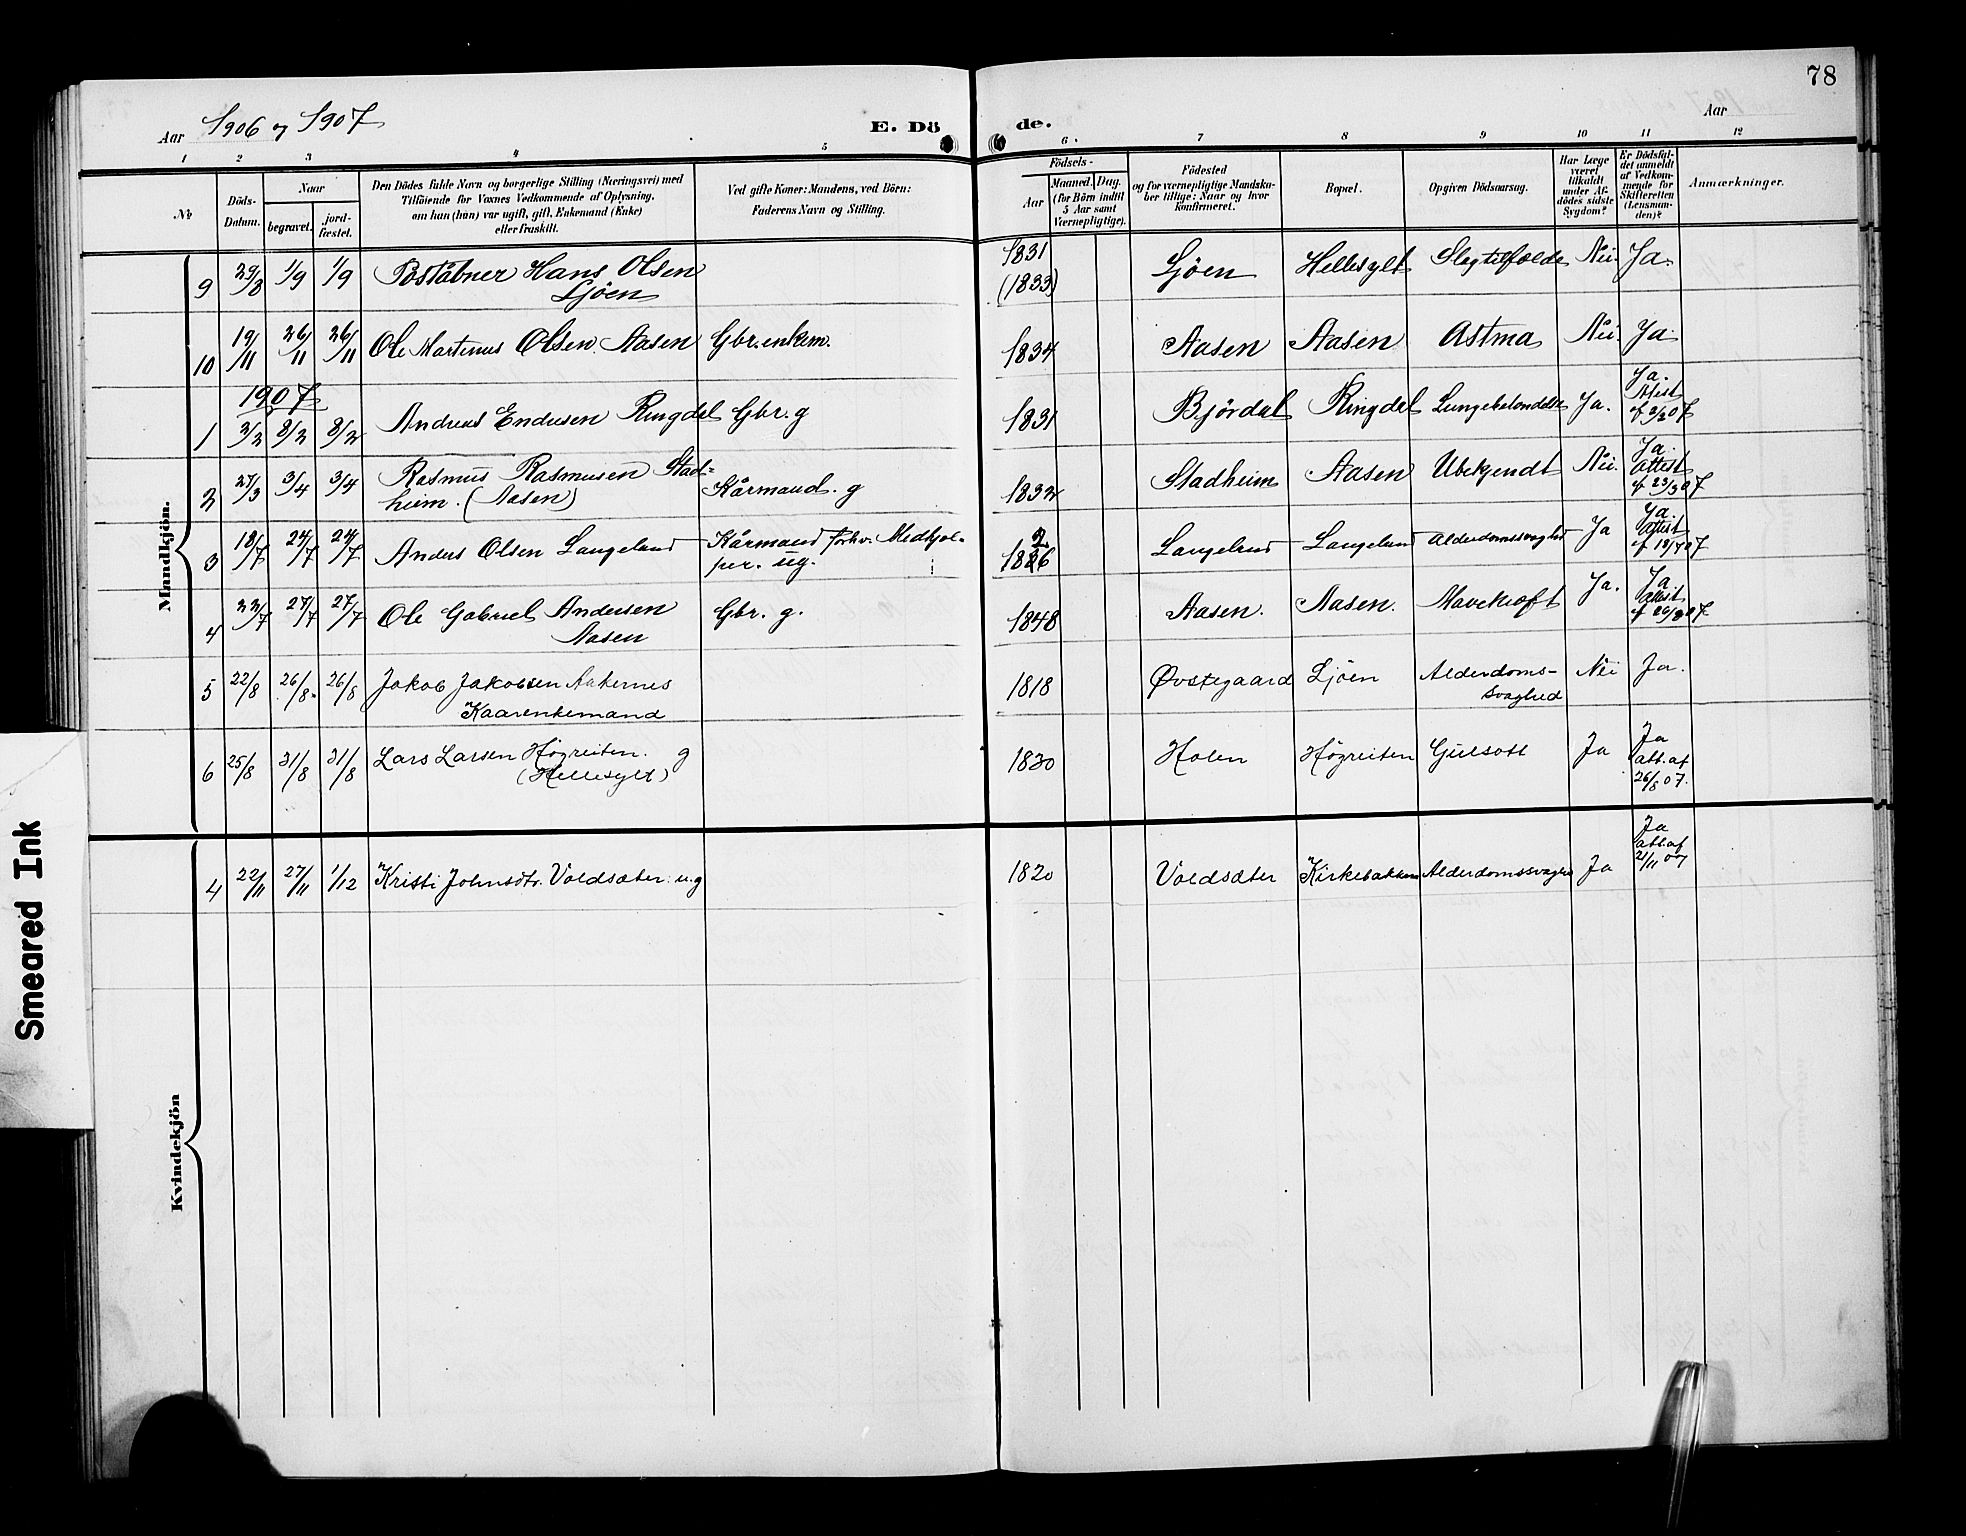 78
Aar 1906 og 1907
E. Dö de.
Aar
1 2 3 4 5 6. 7 8 9 10 11 12
No
Döds-Datum.
Naar
begravet.
jord-fæstet.
Den Dödes fulde Navn og borgerlige Stilling (Næringsvei) med
Tilföiende for Voxnes Vedkommende af Oplysning,
om han (hun) var ugift, gift, Enkemand (Enke)
eller fraskilt.
Ved gifte Koner: Mandens, ved Börn:
Faderens Navn og Stilling.
Födsels-
Aar
Maaned. Dag.
(for Börn indtil
5 Aar samt
Værnepligtige).
Födested
og for værnepligtige Mandska-
ber tillige: Naar og hvor
konfirmeret.
Bopæl.
Opgiven Dödsaarsag.
Har Læge
været
tilkaldt
under Af-
dödes sidste
Sygdom?
Er Dödsfal-
det anmeldt
af Vedkom-
mende for
Skifteretten
(Lensman-
den)?
Anmærkninger.
Mandkjön.
9 29/8 1/9 1/9 Poståbner Hans Olsen 1831 Ljöen Hellesylt Slagtilfælde Nei Ja.
Ljöen (1833)
10 19/11 26/11 26/11 Ole Martinus Olsen Aasen Gbr. enkem. 1834 Aasen Aasen Astma Nei. Ja
1907
1 3/2 8/2 8/2 Andreas Endresen Ringdal Gbr. g 1831 Björdal Ringdal Lungebetændelse Ja. Ja.
Attest
af 3/2 07
2 27/3 3/4 3/4 Rasmus Rasmusen Stad- Kårmand. g 1832 Stadheim Aasen Ubekjendt Nei. Ja.
heim. (Aasen) attest
af 23/3 07
3 18/7 24/7 24/7 Anders Olsen Langeland Kårmand forhv. Medhjæl- 1826 Langeland Langeland Alderdomssvaghed Ja Ja.
per. ug. Attest
af 19/7 07
4 23/7 27/7 27/7 Ole Gabriel Andersen Gbr. g. 1848 Aasen. Aasen. Mavekræft Ja. Ja
Aasen attest
5 22/8 26/8. 26/8 Jakob Jakobsen Aakernes 1818 Øvstegaard Ljöen Alderdoms- Nei Ja.
Kaarenkemand svaghed
6 25/8 31/8 31/8 Lars Larsen Högreiten. g 1830 Holen Högreiten Gulsott Ja Ja
(Hellesylt) att. af
26/8 07.
Kvindekjön
4 22/11 27/11 1/12 Kristi Johnsdtr. Voldsæter. u.g 1820 Voldsæter Kirkebakken Alderdomssvaghed Ja Ja
att. af
21/11 07
Smeared Ink